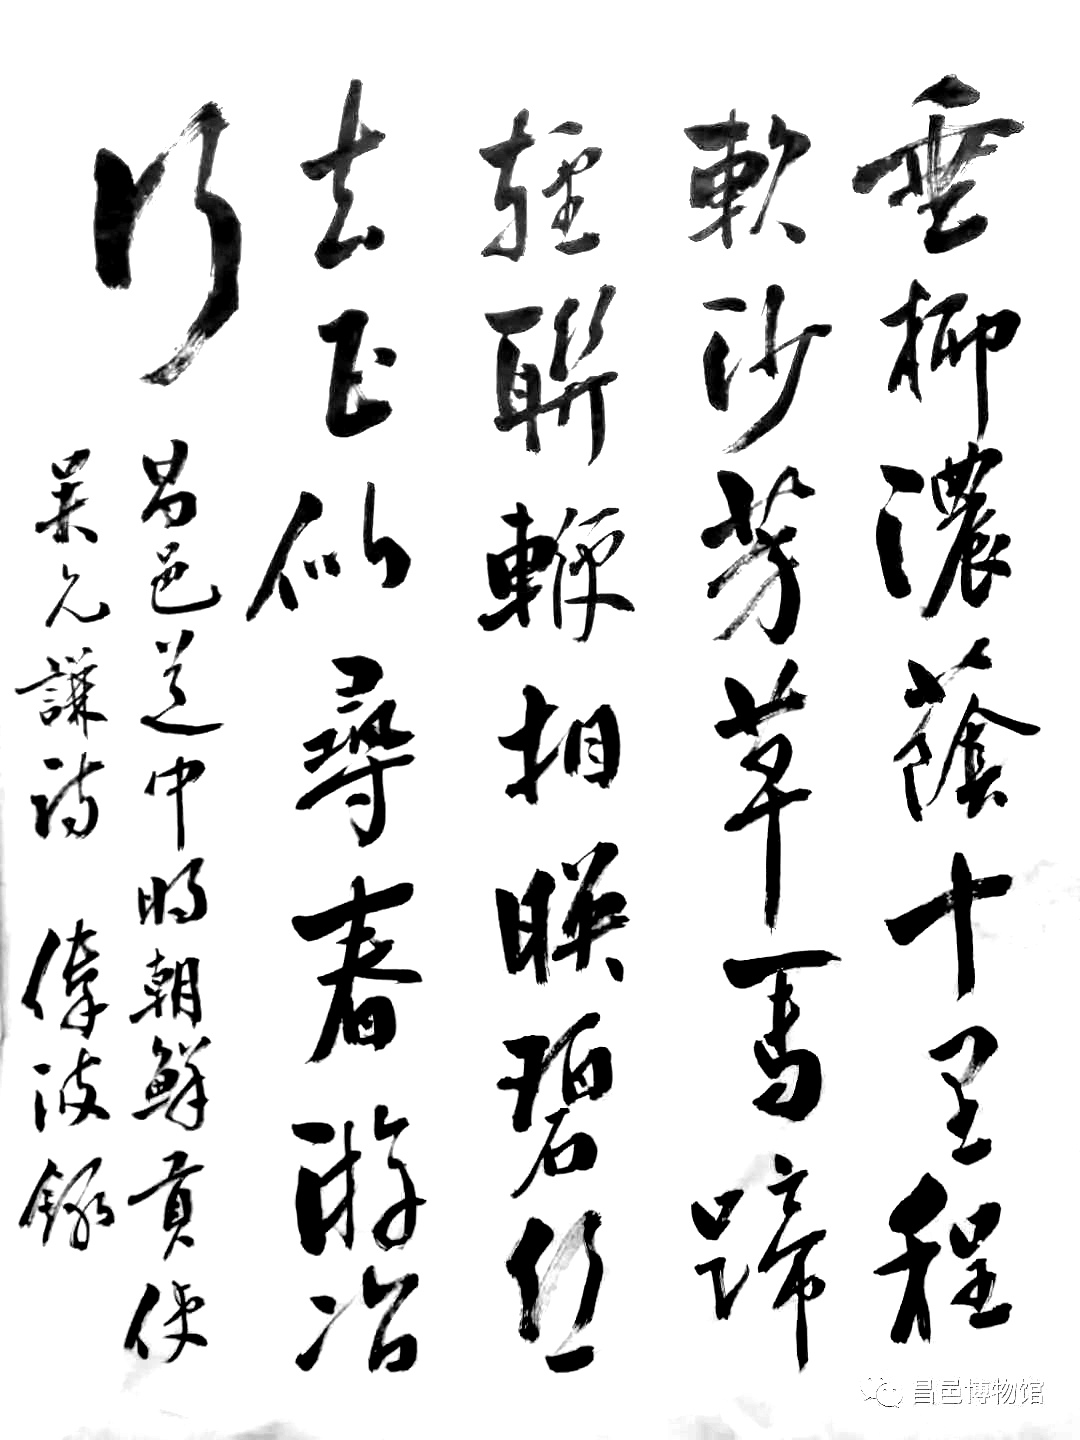 垂柳濃蔭十里程
軟沙芳草馬蹄
輕聯鞭相映碧絲
去正似尋春游冶
行
昌邑道中明朝鮮貢使
吴允謙詩 偉波錄
昌邑博物馆